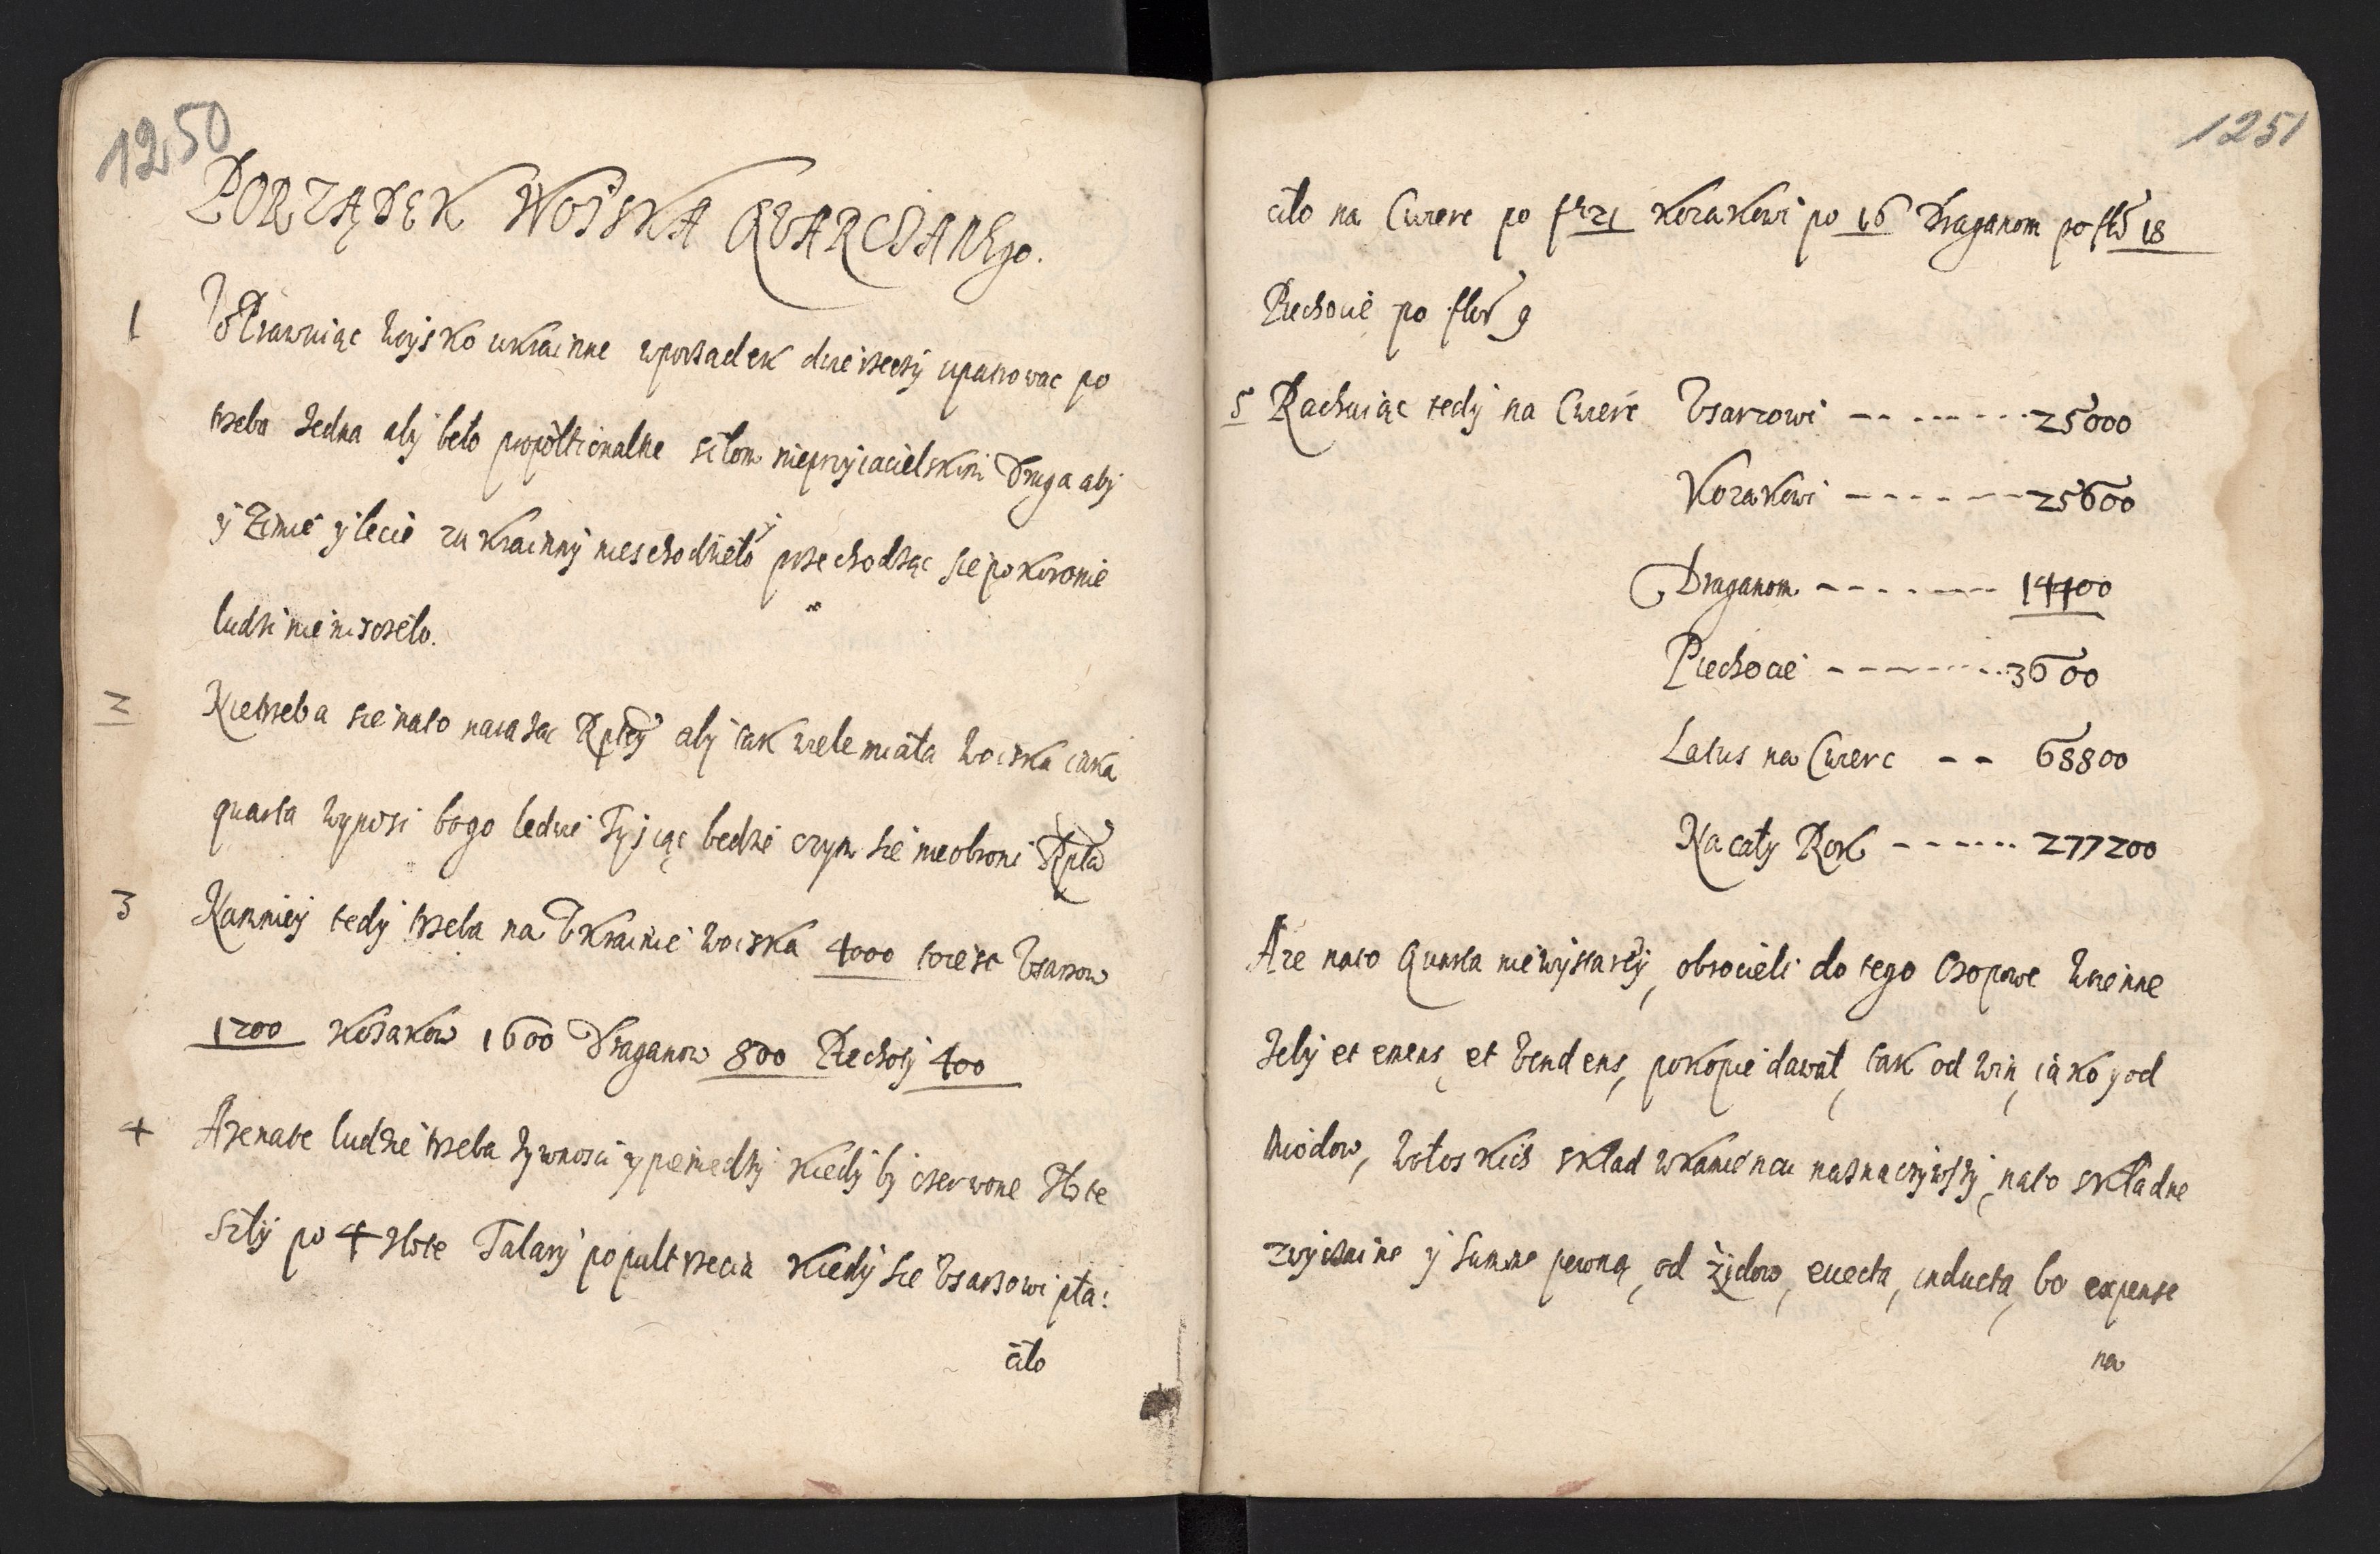 1250
PORZĄDEK WOJSKA QVARCIANEgo.
1 Wprawuiąc woysko ukrainne wporządek dwie rzeczy upatrowac po
trzeba Jedna aby beło proportionalne siłom nieprzyiacielskim Druga aby
y Zimie y lecie zukrainny nieschodzieło y przechodząc sie po koronie
ludzi nie niszczeło.
2 Nietrzeba sie nato narażac Rptey aby tak wiele miała Woiska iaka
quarta wynosi bo go ledwie Tysiąc bedzie czym sie nieobroni Rpta
3 Namniey tedy trzeba na Vkrainie Woiska 4000 toiest Vsarzow
1200 Kozakow 1600 Draganow 800 Piechoty 400
4 A ze na te ludzie trzeba żywnosci y pieniedzy kiedy by czerwone Złote
szły po 4 złote Talary po pułtrzecia kiedy sie Vsarzowi pła:
ciło
1251
ciło na Cwierc po fl 21 Kozakowi po 16 Draganom po fl 18
Piechocie po fl 9
5 Rachuiąc tedy na Cwierc Vsarzowi -- ------- 25000
Kozakowi ------- 25600
Draganom ------- 14400
Piechocie -------- 3600
Latus na Cwierc -- 68800
Na cały Rok ------ 277200
A ze nato Quarta niewystarczy, obrocieli do tego Czopowe Wieinne
żeby et emens, et Vendens, po kopie dawał, tak od win, iako y od
Miodow, Wołoskich skład w kamiencu naznaczywszy, nato składne
zwyczaine y Summe pewną, od Żydow, euecta, inducta, bo expense
na